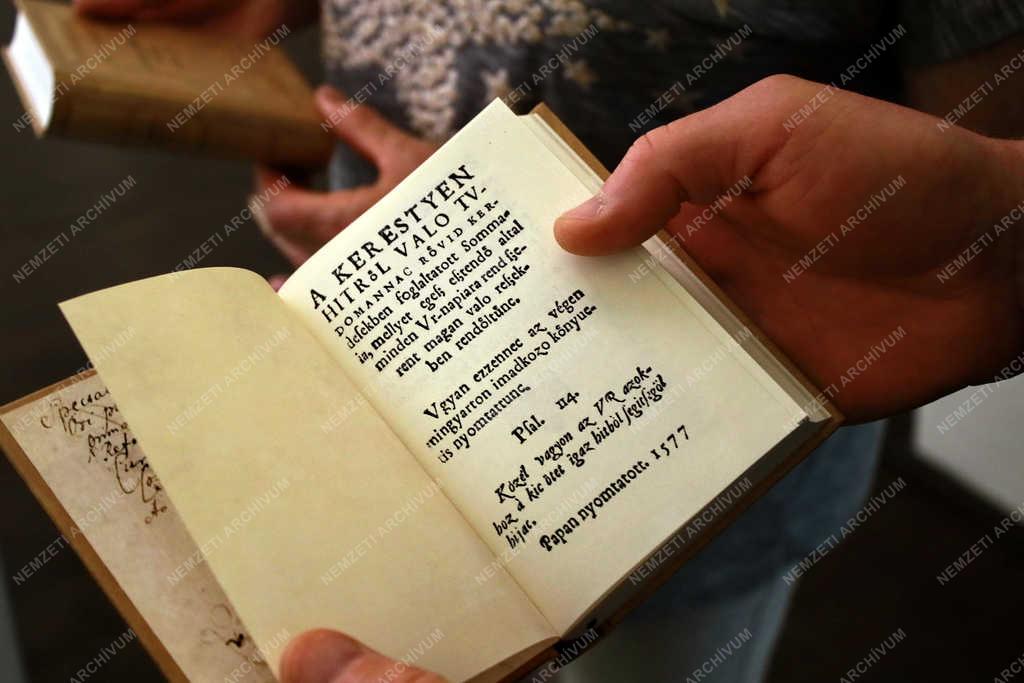 A KERESTYEN
HITRŐL VALO TV-
DOMANNAC RŐVID KER-
desekben foglaltatott Somma-
ia, mellyet egeſz eſztendő altal
minden Vr-napiara rend ſze-
rent magan valo reſzek-
ben rendőltűnc.
Vgyan ezzennec az vẻgen
mingyarton imadkozo kőnyue-
tis nyomtattunc.
Pſal. 114.
Kőzel vagyon az VR azok-
hoz a kic őtet igaz hitből ſegitſegűl
hijac.
Papan nyomtatott. 1577
NEMZETI ARCHÍVUM